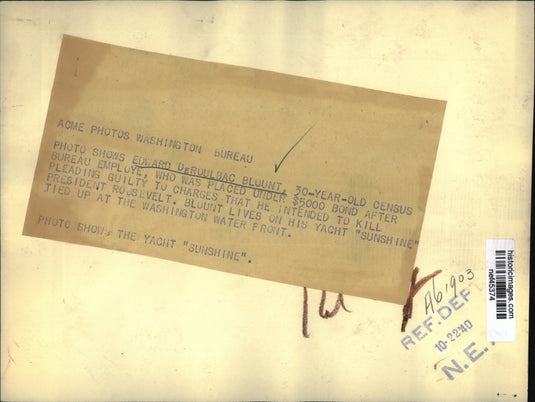 ACME PHOTOS WASHINGTON BUREAU
PHOTO SHOWS EDWARD DEROULBAC BLOUNT, 30-YEAR-OLD CENSUS
BUREAU EMPLOYE, WHO WAS PLACED UNDER $5000 BOND AFTER
PLEADING GUILTY TO CHARGES THAT HE INTENDED TO KILL
PRESIDENT ROOSEVELT. BLOUNT LIVES ON HIS YACHT "SUNSHINE"
TIED UP AT THE WASHINGTON WATER FRONT.
PHOTO SHOWS THE YACHT "SUNSHINE".
historicimages.com
nef45374
A61903
REF. DEF
10-22-40
N.E.